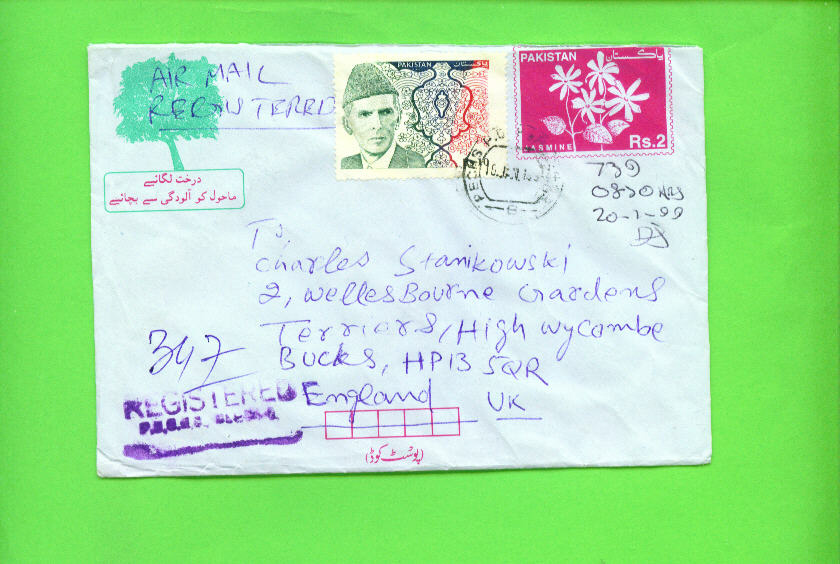 AIR MAIL
REGISTERED
درخت لگائیے
ماحول کو آلودگی سے بچائیے
PAKISTAN پاکستان
PAKISTAN پاکستان
JASMINE Rs.2
739
0830 HRS
20-1-99
To,
Charles Stanikowski
2, WellesBourne Gardens
Terriers, High Wycombe
BUCKS, HP13 5QR
England UK
347
REGISTERED
(پوسٹ کوڈ)